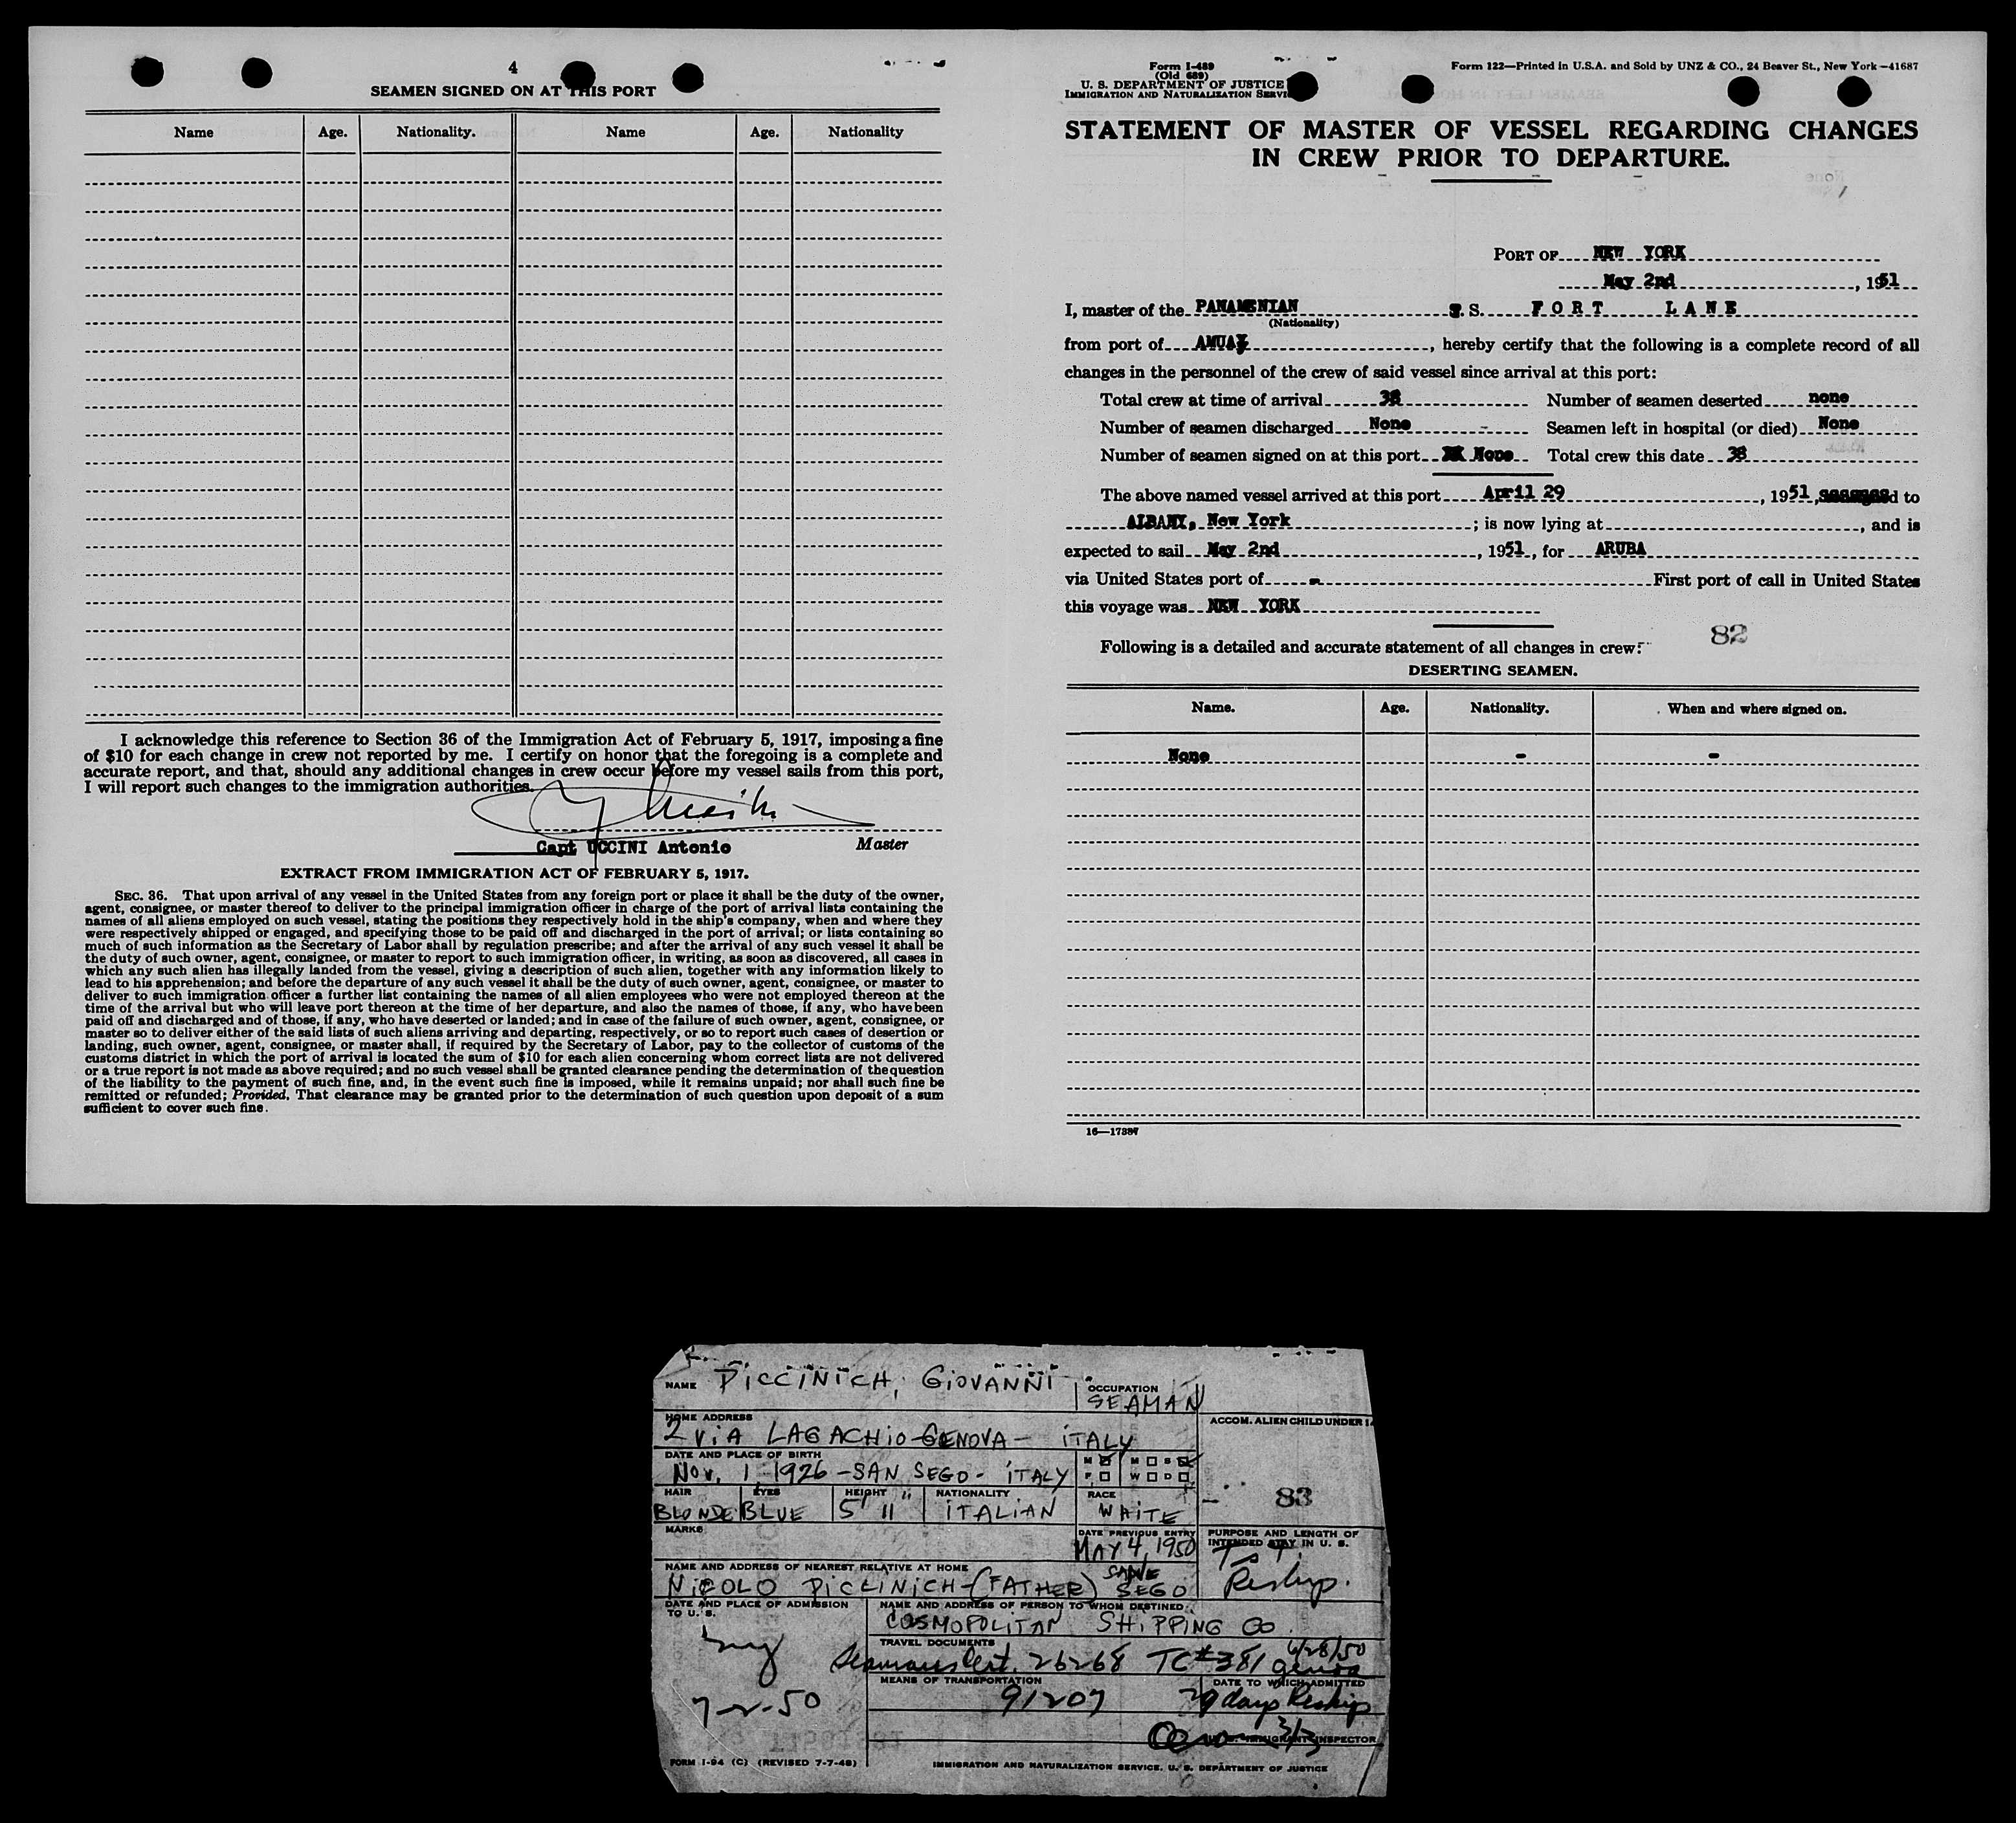 4
SEAMEN SIGNED ON AT THIS PORT
Name Age. Nationality. Name Age. Nationality
I acknowledge this reference to Section 36 of the Immigration Act of February 5, 1917, imposing a fine
of $10 for each change in crew not reported by me. I certify on honor that the foregoing is a complete and
accurate report, and that, should any additional changes in crew occur before my vessel sails from this port,
I will report such changes to the immigration authorities.
Capt UCCINI Antonio Master
EXTRACT FROM IMMIGRATION ACT OF FEBRUARY 5, 1917.
SEC. 36. That upon arrival of any vessel in the United States from any foreign port or place it shall be the duty of the owner,
agent, consignee, or master thereof to deliver to the principal immigration officer in charge of the port of arrival lists containing the
names of all aliens employed on such vessel, stating the positions they respectively hold in the ship's company, when and where they
were respectively shipped or engaged, and specifying those to be paid off and discharged in the port of arrival; or lists containing so
much of such information as the Secretary of Labor shall by regulation prescribe; and after the arrival of any such vessel it shall be
the duty of such owner, agent, consignee, or master to report to such immigration officer, in writing, as soon as discovered, all cases in
which any such alien has illegally landed from the vessel, giving a description of such alien, together with any information likely to
lead to his apprehension; and before the departure of any such vessel it shall be the duty of such owner, agent, consignee, or master to
deliver to such immigration officer a further list containing the names of all alien employees who were not employed thereon at the
time of the arrival but who will leave port thereon at the time of her departure, and also the names of those, if any, who have been
paid off and discharged and of those, if any, who have deserted or landed; and in case of the failure of such owner, agent, consignee, or
master so to deliver either of the said lists of such aliens arriving and departing, respectively, or so to report such cases of desertion or
landing, such owner, agent, consignee, or master shall, if required by the Secretary of Labor, pay to the collector of customs of the
customs district in which the port of arrival is located the sum of $10 for each alien concerning whom correct lists are not delivered
or a true report is not made as above required; and no such vessel shall be granted clearance pending the determination of the question
of the liability to the payment of such fine, and, in the event such fine is imposed, while it remains unpaid; nor shall such fine be
remitted or refunded; Provided, That clearance may be granted prior to the determination of such question upon deposit of a sum
sufficient to cover such fine.
Form I-489
(Old 689)
U. S. DEPARTMENT OF JUSTICE
IMMIGRATION AND NATURALIZATION SERVI
Form 122—Printed in U.S.A. and Sold by UNZ & CO., 24 Beaver St., New York—41687
STATEMENT OF MASTER OF VESSEL REGARDING CHANGES
IN CREW PRIOR TO DEPARTURE.
PORT OF NEW YORK
May 2nd, 1951
I, master of the PANAMENIAN S. S. FORT LANE
(Nationality)
from port of AMUAY, hereby certify that the following is a complete record of all
changes in the personnel of the crew of said vessel since arrival at this port:
Total crew at time of arrival 38 Number of seamen deserted none
Number of seamen discharged None Seamen left in hospital (or died) None
Number of seamen signed on at this port None Total crew this date 38
The above named vessel arrived at this port April 29, 1951, to
ALBANY, New York; is now lying at, and is
expected to sail May 2nd, 1951, for ARUBA
via United States port of - First port of call in United States
this voyage was NEW YORK
82
Following is a detailed and accurate statement of all changes in crew:
DESERTING SEAMEN.
Name. Age. Nationality. When and where signed on.
None - -
16—17387
NAME PICCINICH, GIOVANNI OCCUPATION SEAMAN
HOME ADDRESS ACCOM. ALIEN CHILD UNDER
2 ViA LAGACHio-GENOVA- iTALY
DATE AND PLACE OF BIRTH
Nov. 1 1926 -SAN SEGO- iTALY M F M S W D
HAIR EYES HEIGHT NATIONALITY RACE
BLONDE BLUE 5' 11" iTALiAN WHiTE 83
MARKS
DATE PREVIOUS ENTRY MAY 4, 1950
PURPOSE AND LENGTH OF
INTENDED STAY IN U. S.
Reship.
NAME AND ADDRESS OF NEAREST RELATIVE AT HOME
NiCOLO PiCCiNiCH-(FATHER) SANE SEGO
DATE AND PLACE OF ADMISSION
TO U. S.
NAME AND ADDRESS OF PERSON TO WHOM DESTINED
COSMOPOLITAN SHiPPiNG CO.
TRAVEL DOCUMENTS
Seamans Cert. 26268 TC#381 6/28/50 genoa
ny
7-2-50
MEANS OF TRANSPORTATION
91207
DATE TO WHICH ADMITTED
29 days Reship
IMMIGRANT INSPECTOR
FORM I-94 (C) (REVISED 7-7-48)
IMMIGRATION AND NATURALIZATION SERVICE, U. S. DEPARTMENT OF JUSTICE